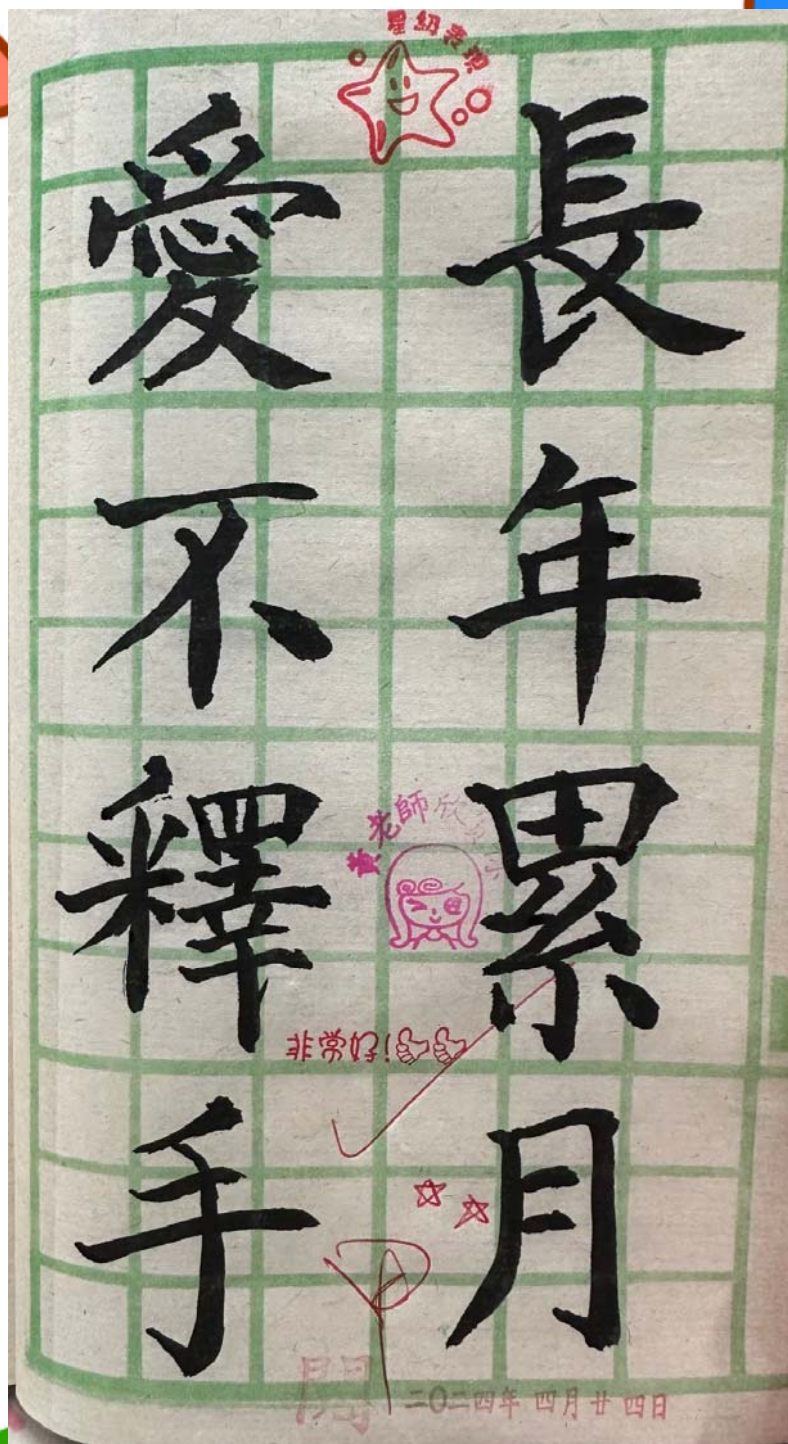 星級表現
長年累月
愛不釋手
黃老師欣
非常好!
閱
二〇二四年 四月廿四日